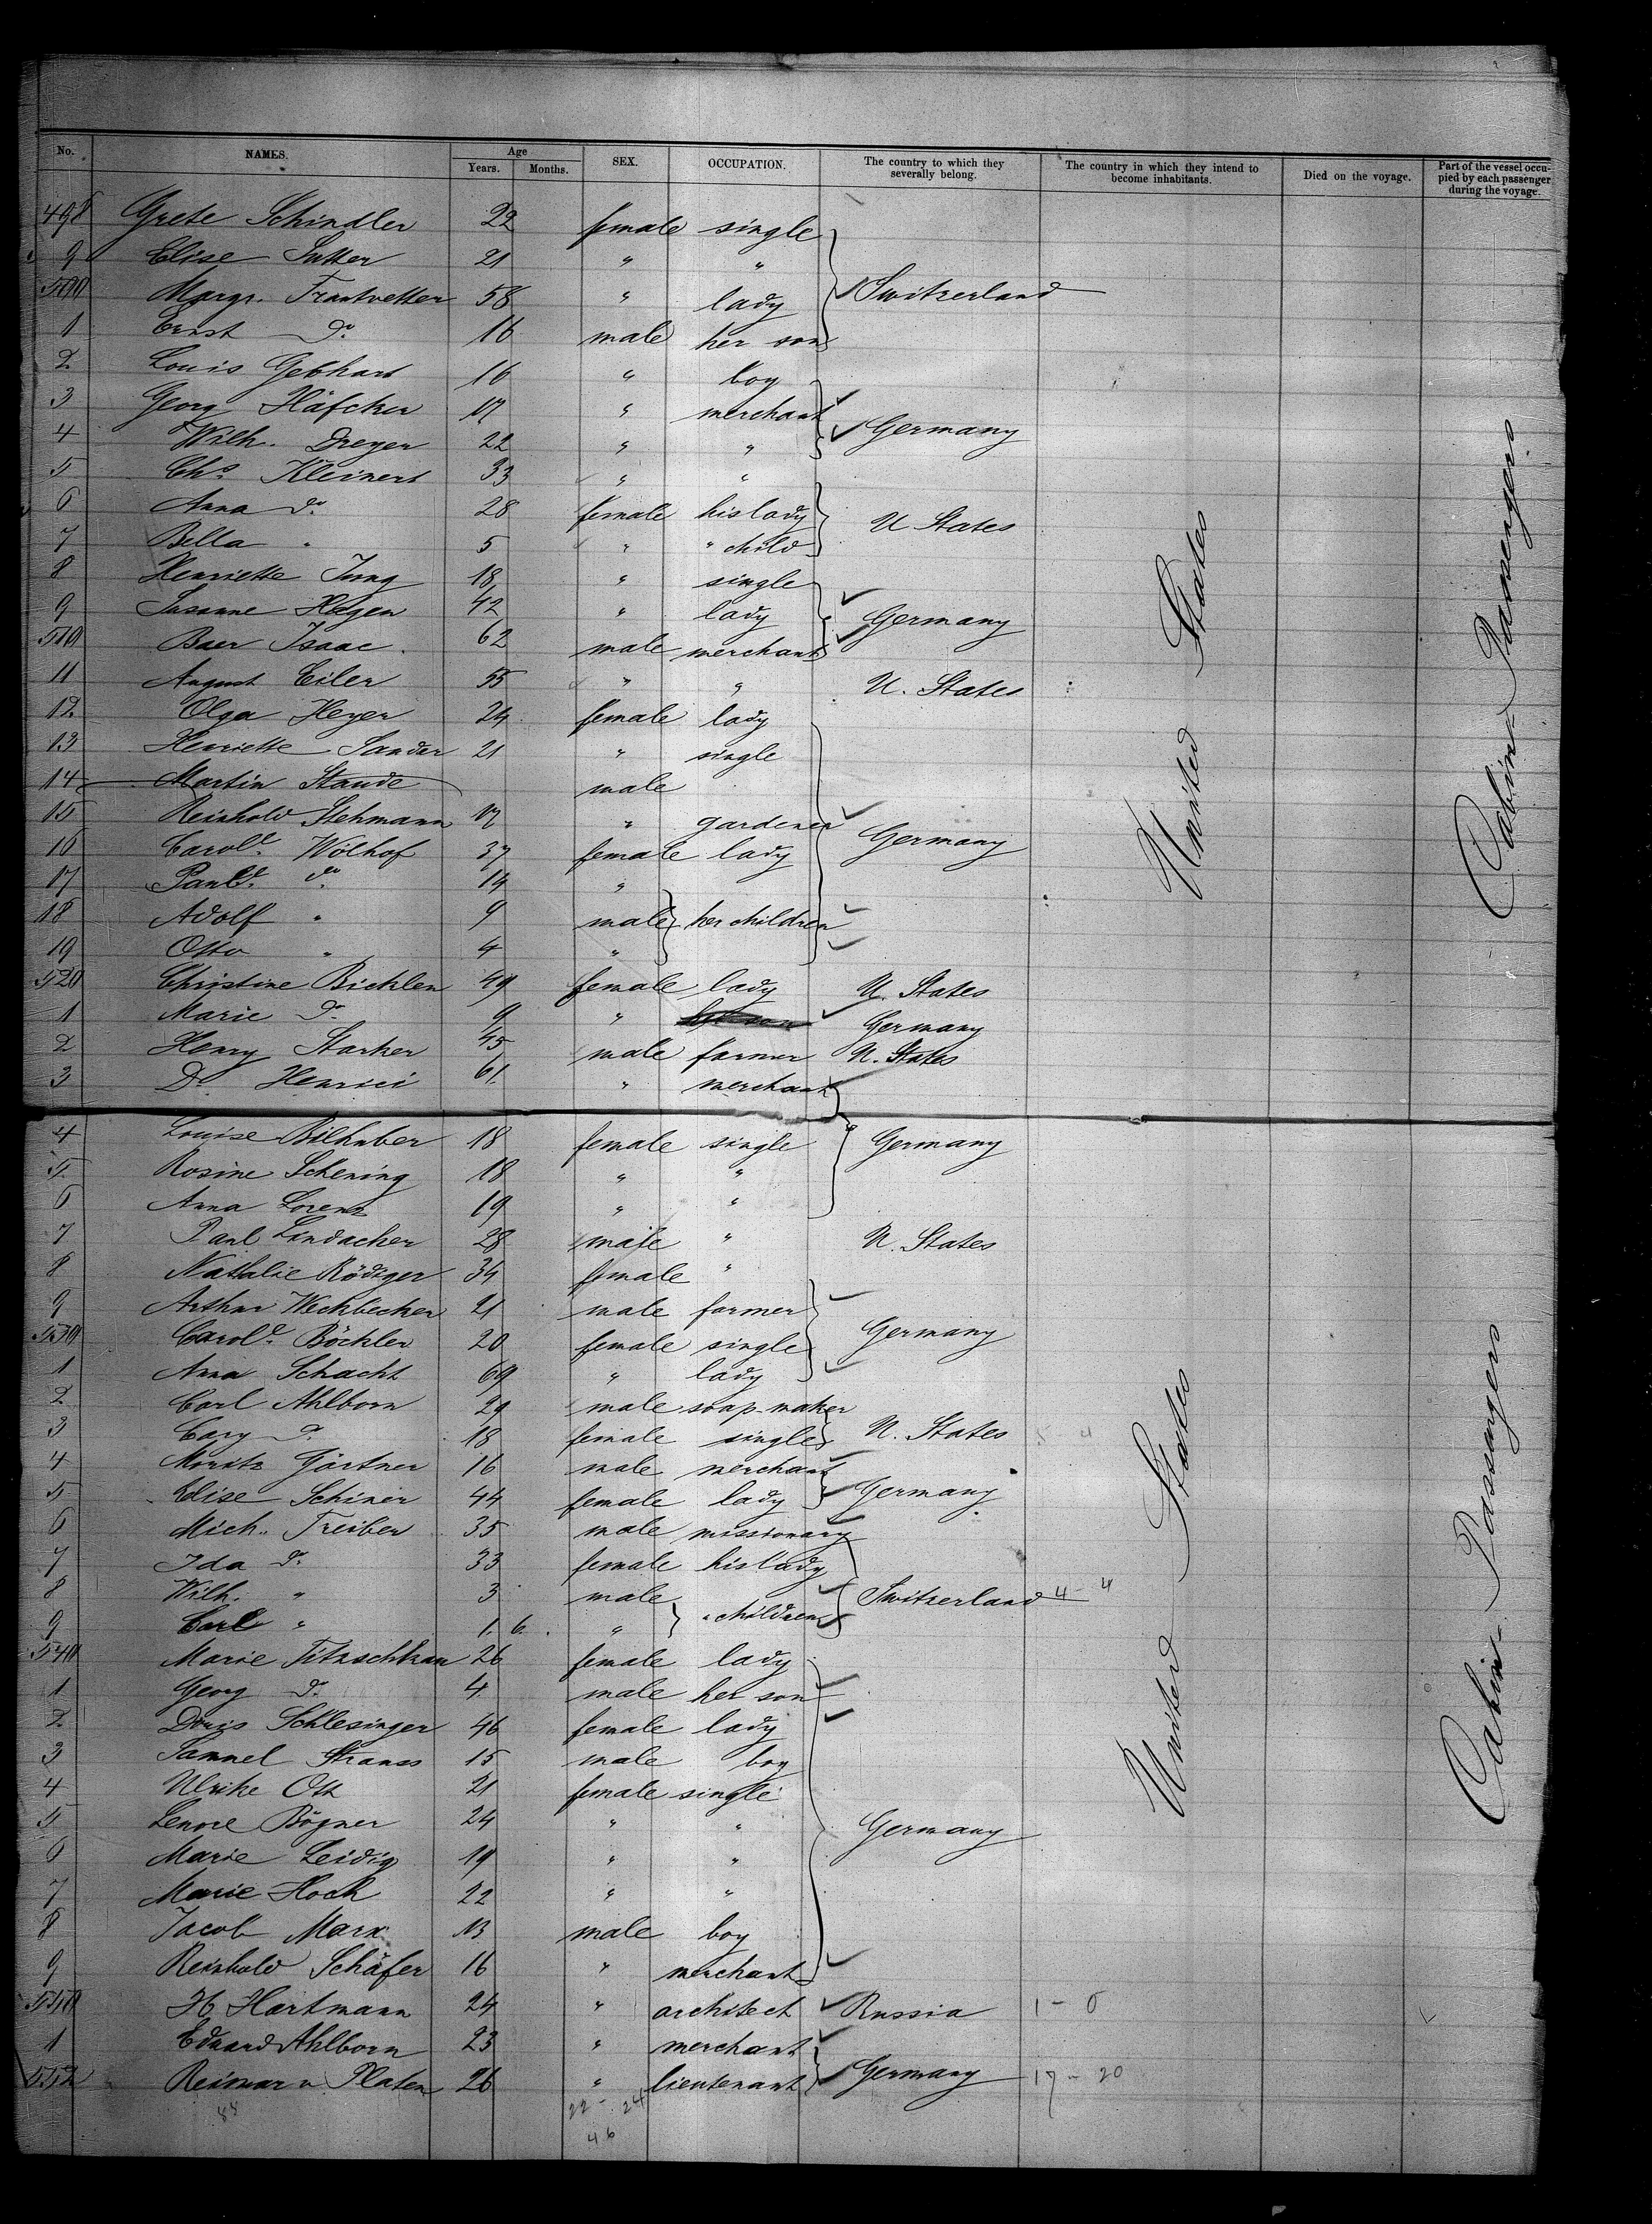 No. NAMES. Age Years. Months. SEX. OCCUPATION. The country to which they severally belong. The country in which they intend to become inhabitants. Died on the voyage. Part of the vessel occupied by each passenger during the voyage.
498 Grete Schindler 22 female single
9 Elise Sutter 21 " "
500 Margr. Trautvetter 58 " lady Switzerland
1 Ernst Do 16 male her son
2 Louis Gebhart 16 " boy
3 Georg Häfcker 17 " merchant
4 Wilh. Dreyer 22 " " Germany
5 Chs Kleinert 33 " "
6 Anna do 28 female his lady U States
7 Bella " 5 " " child
8 Henriette Jung 18 " single
9 Susanne Hagen 42 " lady Germany
510 Baer Isaac 62 male merchant
11 August Eiler 55 " " U. States
12 Olga Heyer 24 female lady
13 Henriette Sander 21 " single
14 Martin Staude male
15 Reinhold Stehmann 17 " gardener
16 Carole. Wölhof 37 female lady Germany
17 do 14 "
18 Adolf " 9 male her children
19 Otto " 4 "
520 Christine Bichlen 49 female lady U. States
1 Marie Do 9 " Germany
2 Henry Starker 45 male farmer U. States
3 Dr Henrici 61 " merchant
4 Louise Bilhuber 18 female single Germany
5 Rosine Schening 18 " "
6 Anna Lorenz 19 " "
7 Paul Landacker 28 male " U. States
8 Nathalie Rödiger 34 female "
9 Arthur Weckbecker 21 male farmer
530 Carole. Böchler 20 female single Germany
1 Anna Schacht 69 " lady
2 Carl Ahlborn 29 male soap-maker
3 Cary Do 18 female single U. States
4 Moritz Gärtner 16 male merchant
5 Elise Schirer 44 female lady Germany
6 Mich. Treiber 35 male missionary
7 Ida Do 33 female his lady
8 Wilh. " 3 male Switzerland 4 - 4
9 Carl " 1 6 " " children
540 Marie Titzschkau 26 female lady
1 Georg Do 4 male her son
2 Doris Schlesinger 46 female lady
3 Samuel Strauss 15 male boy
4 Ulrike Ott 21 female single
5 Lenore Bögner 24 " " Germany
6 Marie Leidig 19 " "
7 Marie Hoch 22 " "
8 Jacob Marx 13 male boy
9 Reinhold Schäfer 16 " merchant
550 H. Hartmann 24 " architect Russia 1 - 0
1 Eduard Ahlborn 23 " merchant
552 Reimar v. Platen 26 " lieutenant Germany 17 - 20
88 22 - 24
46
United States
Cabin Passengers
United States
Cabin Passangers